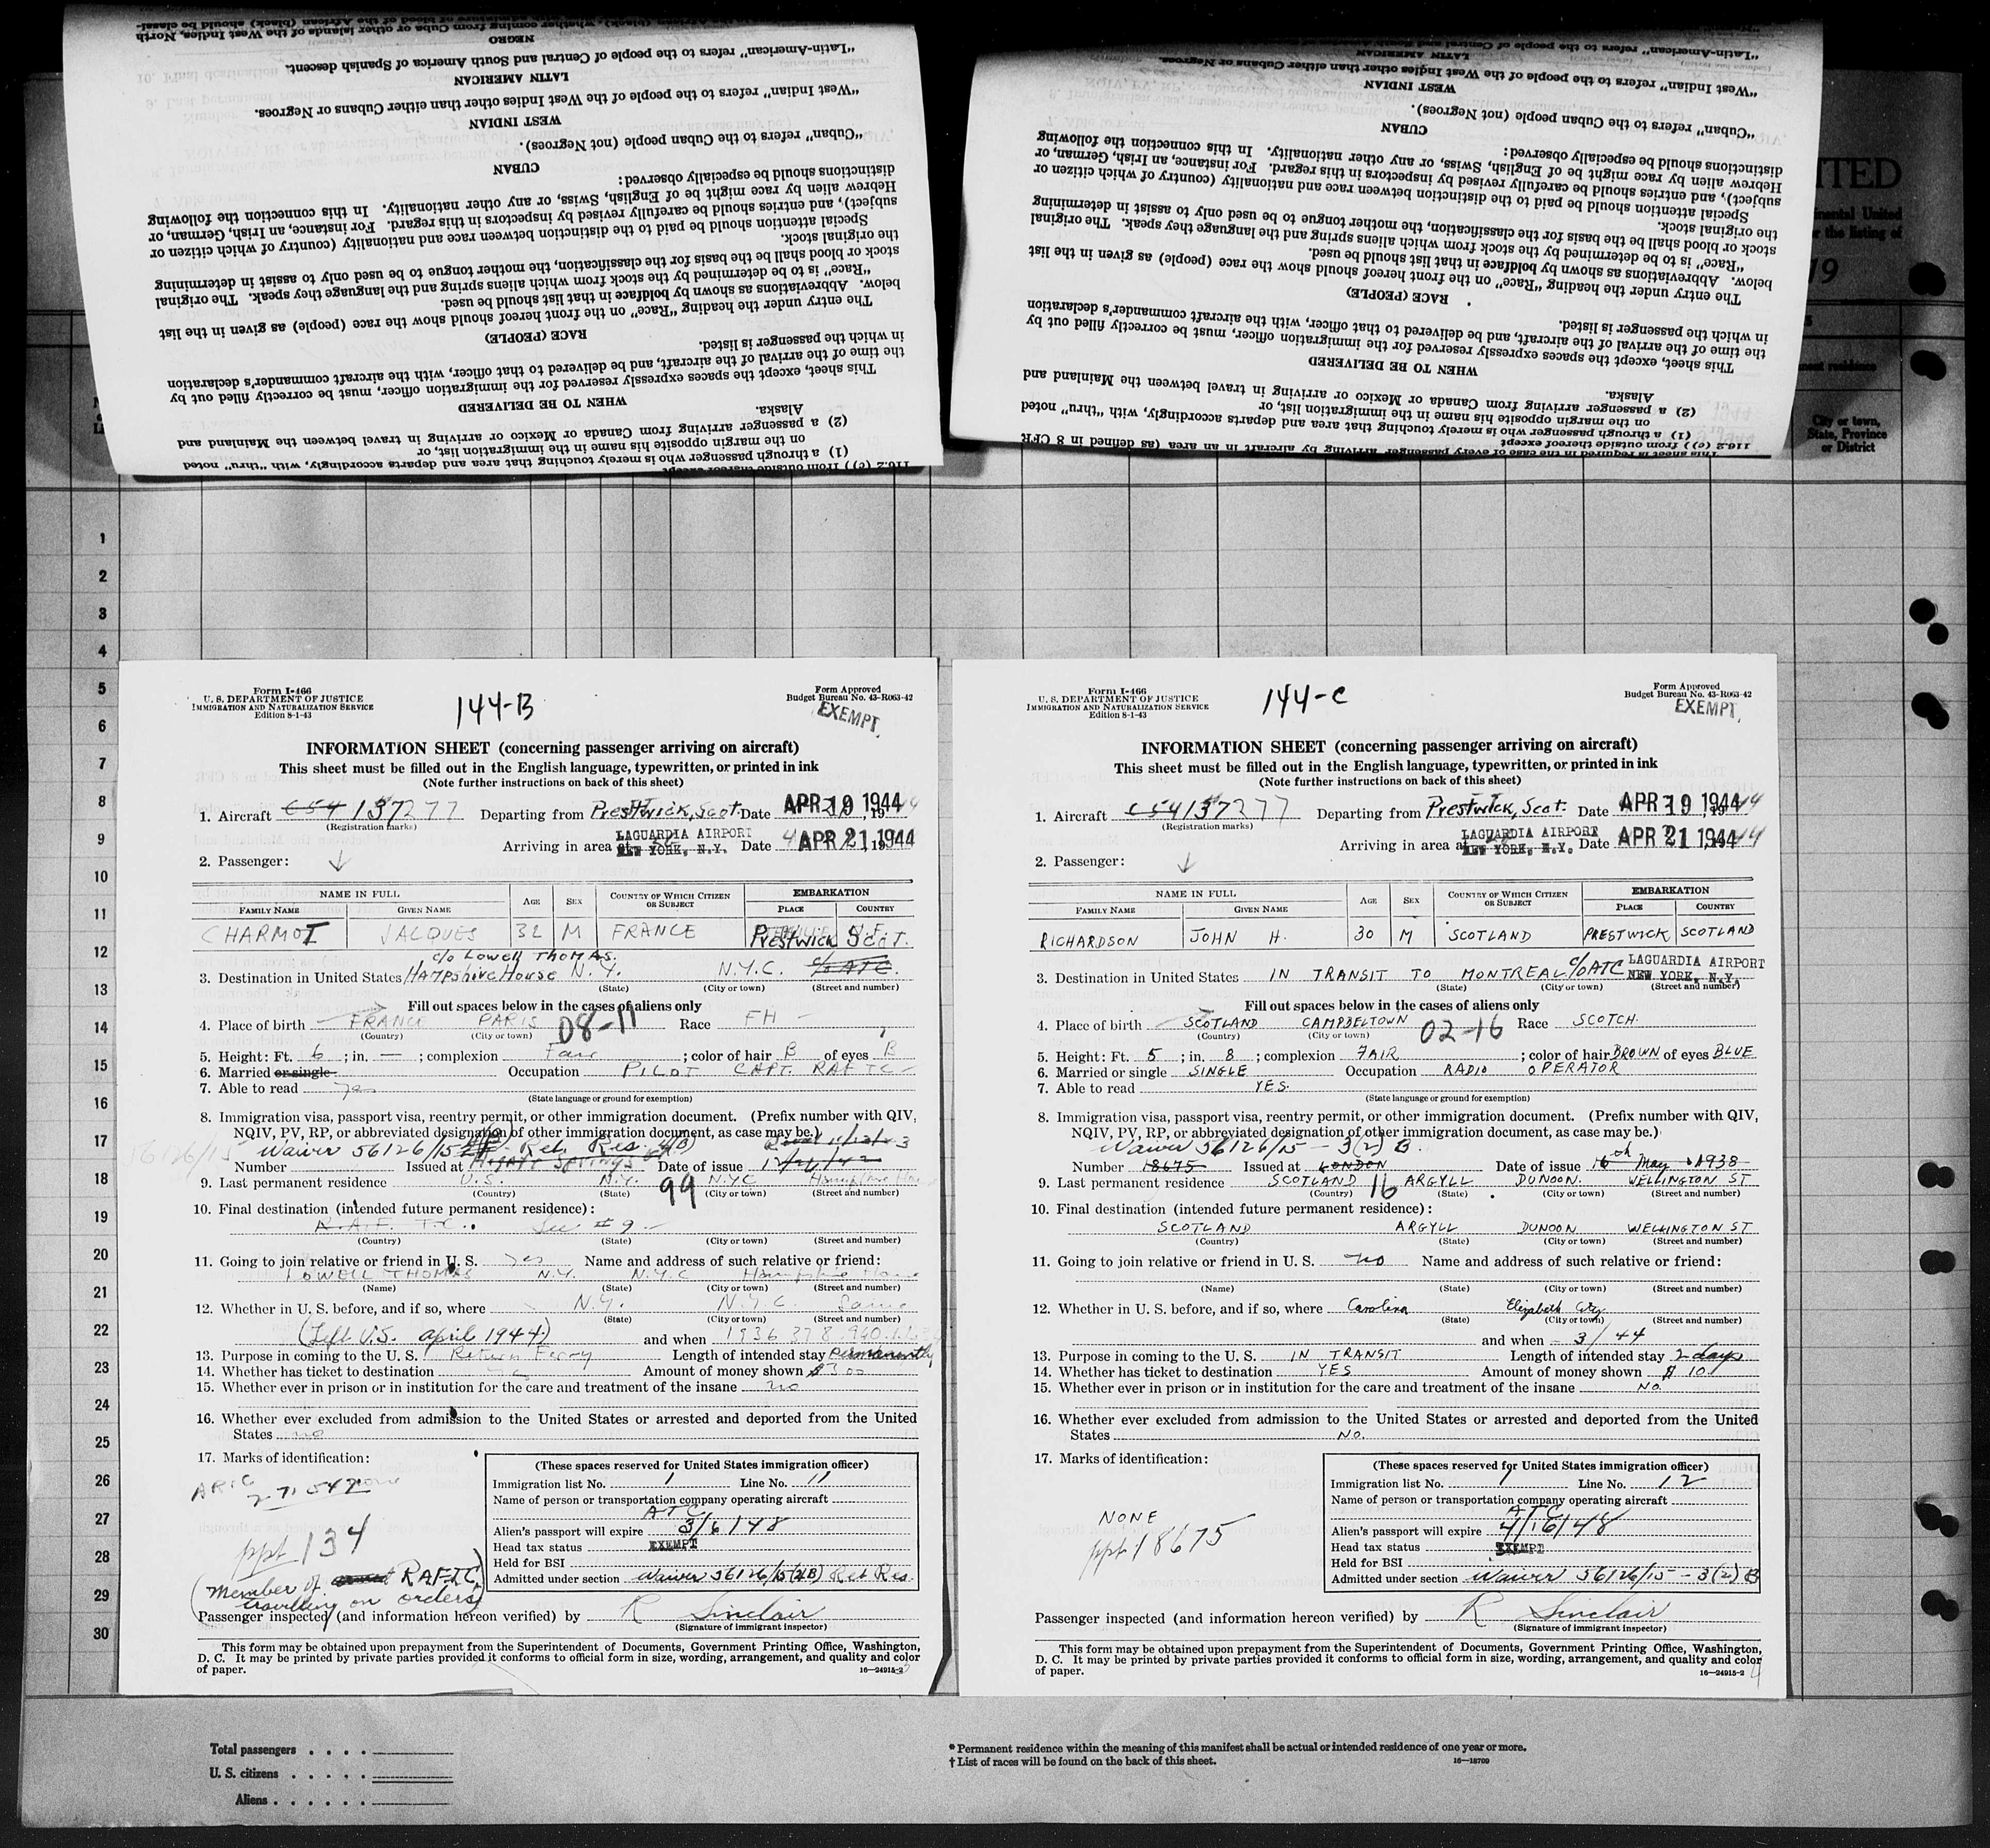 NEGRO
"Latin-American" refers to the people of Central and South America of Spanish descent.
LATIN AMERICAN
"West Indian" refers to the people of the West Indies other than either Cubans or Negroes.
WEST INDIAN
"Cuban" refers to the Cuban people (not Negroes).
CUBAN
distinctions should be especially observed:
Hebrew alien by race might be of English, Swiss, or any other nationality. In this connection the following
subject), and entries should be carefully revised by inspectors in this regard. For instance, an Irish, German, or
Special attention should be paid to the distinction between race and nationality (country of which citizen or
the original stock.
stock or blood shall be the basis for the classification, the mother tongue to be used only to assist in determining
"Race" is to be determined by the stock from which aliens spring and the language they speak. The original
below. Abbreviations as shown by boldface in that list should be used.
The entry under the heading "Race" on the front hereof should show the race (people) as given in the list
RACE (PEOPLE)
in which the passenger is listed.
the time of the arrival of the aircraft, and be delivered to that officer, with the aircraft commander's declaration
This sheet, except the spaces expressly reserved for the immigration officer, must be correctly filled out by
WHEN TO BE DELIVERED
Alaska.
(2) a passenger arriving from Canada or Mexico or arriving in travel between the Mainland and
on the margin opposite his name in the immigration list, or
(1) a through passenger who is merely touching that area and departs accordingly, with "thru" noted
116.2 (c)) from outside thereof except
"Latin-American" refers to the people of Central and South America of Spanish descent.
LATIN AMERICAN
"West Indian" refers to the people of the West Indies other than either Cubans or Negroes.
WEST INDIAN
"Cuban" refers to the Cuban people (not Negroes).
CUBAN
distinctions should be especially observed:
Hebrew alien by race might be of English, Swiss, or any other nationality. In this connection the following
subject), and entries should be carefully revised by inspectors in this regard. For instance, an Irish, German, or
Special attention should be paid to the distinction between race and nationality (country of which citizen or
the original stock.
stock or blood shall be the basis for the classification, the mother tongue to be used only to assist in determining
"Race" is to be determined by the stock from which aliens spring and the language they speak. The original
below. Abbreviations as shown by boldface in that list should be used.
The entry under the heading "Race" on the front hereof should show the race (people) as given in the list
RACE (PEOPLE)
in which the passenger is listed.
the time of the arrival of the aircraft, and be delivered to that officer, with the aircraft commander's declaration
This sheet, except the spaces expressly reserved for the immigration officer, must be correctly filled out by
WHEN TO BE DELIVERED
Alaska.
(2) a passenger arriving from Canada or Mexico or arriving in travel between the Mainland and
on the margin opposite his name in the immigration list, or
(1) a through passenger who is merely touching that area and departs accordingly, with "thru" noted
116.2 (c)) from outside thereof except
This sheet is required in the case of every passenger arriving by aircraft in an area (as defined in 8 CFR
ITED
inental United
r the listing of
19
nent residence
City or town,
State, Province
or District
1
2
3
4
5
6
7
8
9
10
11
12
13
14
15
16
17
18
19
20
21
22
23
24
25
26
27
28
29
30
Form I-466
U. S. DEPARTMENT OF JUSTICE
IMMIGRATION AND NATURALIZATION SERVICE
Edition 8-1-43
144-B
Form Approved
Budget Bureau No. 43-R063-42
EXEMPT
INFORMATION SHEET (concerning passenger arriving on aircraft)
This sheet must be filled out in the English language, typewritten, or printed in ink
(Note further instructions on back of this sheet)
1. Aircraft C54 137277 Departing from Prestwick, Scot. Date APR 19 1944
(Registration marks)
Arriving in area at LAGUARDIA AIRPORT NEW YORK, N.Y. Date APR 21 1944
2. Passenger:
NAME IN FULL AGE SEX COUNTRY OF WHICH CITIZEN OR SUBJECT EMBARKATION
FAMILY NAME GIVEN NAME PLACE COUNTRY
CHARMOT JACQUES 32 M FRANCE Prestwick Scot.
c/o Lowell THOMAS.
3. Destination in United States Hampshire House N.Y. N.Y.C. c/o ATC.
(State) (City or town) (Street and number)
Fill out spaces below in the cases of aliens only
4. Place of birth FRANCE PARIS 08-11 Race FH -
(Country) (City or town)
5. Height: Ft. 6 ; in. — ; complexion Fair ; color of hair B of eyes B
6. Married or single Occupation PILOT CAPT. RAF TC -
7. Able to read yes
(State language or ground for exemption)
8. Immigration visa, passport visa, reentry permit, or other immigration document. (Prefix number with QIV,
NQIV, PV, RP, or abbreviated designation of other immigration document, as case may be.)
Waiver 56126/15 Ret. Res. 4(B)
Number Issued at Date of issue 12/24/42
9. Last permanent residence U.S. N.Y. 99 NYC
(Country) (State) (City or town) (Street and number)
10. Final destination (intended future permanent residence):
R.A.F. T.C. See #9 -
(Country) (State) (City or town) (Street and number)
11. Going to join relative or friend in U. S. yes Name and address of such relative or friend:
LOWELL THOMAS N.Y. N.Y.C Hampshire House
(Name) (State) (City or town) (Street and number)
12. Whether in U. S. before, and if so, where N.Y. N.Y.C. Same
(State) (City or town) (Street and number)
(Left U.S. april 1944) and when 1936 37 8 940
13. Purpose in coming to the U. S. Return Ferry Length of intended stay Permanently
14. Whether has ticket to destination Amount of money shown $300
15. Whether ever in prison or in institution for the care and treatment of the insane no
16. Whether ever excluded from admission to the United States or arrested and deported from the United
States no
17. Marks of identification:
ppt 134
(Member of RAFTC,
travelling on orders)
(These spaces reserved for United States immigration officer)
Immigration list No. 1 Line No. 11
Name of person or transportation company operating aircraft
ATC
Alien's passport will expire 3/6/48
Head tax status EXEMPT
Held for BSI
Admitted under section Waiver 56126/15(4B) Ret Res.
Passenger inspected (and information hereon verified) by R Sinclair
(Signature of immigrant inspector)
This form may be obtained upon prepayment from the Superintendent of Documents, Government Printing Office, Washington,
D. C. It may be printed by private parties provided it conforms to official form in size, wording, arrangement, and quality and color
of paper. 16—24915-2
Form I-466
U. S. DEPARTMENT OF JUSTICE
IMMIGRATION AND NATURALIZATION SERVICE
Edition 8-1-43
144-C
Form Approved
Budget Bureau No. 43-R063-42
EXEMPT
INFORMATION SHEET (concerning passenger arriving on aircraft)
This sheet must be filled out in the English language, typewritten, or printed in ink
(Note further instructions on back of this sheet)
1. Aircraft C54 137277 Departing from Prestwick, Scot. Date APR 19 1944
(Registration marks)
Arriving in area at LAGUARDIA AIRPORT NEW YORK, N.Y. Date APR 21 1944
2. Passenger:
NAME IN FULL AGE SEX COUNTRY OF WHICH CITIZEN OR SUBJECT EMBARKATION
FAMILY NAME GIVEN NAME PLACE COUNTRY
RICHARDSON JOHN H. 30 M SCOTLAND PRESTWICK SCOTLAND
3. Destination in United States IN TRANSIT TO MONTREAL c/o ATC LAGUARDIA AIRPORT NEW YORK, N.Y.
(State) (City or town) (Street and number)
Fill out spaces below in the cases of aliens only
4. Place of birth SCOTLAND CAMPBELTOWN 02-16 Race SCOTCH.
(Country) (City or town)
5. Height: Ft. 5 ; in. 8 ; complexion FAIR ; color of hair BROWN of eyes BLUE
6. Married or single SINGLE Occupation RADIO OPERATOR
7. Able to read YES.
(State language or ground for exemption)
8. Immigration visa, passport visa, reentry permit, or other immigration document. (Prefix number with QIV,
NQIV, PV, RP, or abbreviated designation of other immigration document, as case may be.)
Waiver 56126/15 - 3(2) B.
Number 18675 Issued at LONDON Date of issue 16th May 1938
9. Last permanent residence SCOTLAND 16 ARGYLL DUNOON. WELLINGTON ST
(Country) (State) (City or town) (Street and number)
10. Final destination (intended future permanent residence):
SCOTLAND ARGYLL DUNOON WELLINGTON ST
(Country) (State) (City or town) (Street and number)
11. Going to join relative or friend in U. S. no Name and address of such relative or friend:
(Name) (State) (City or town) (Street and number)
12. Whether in U. S. before, and if so, where Carolina Elizabeth City
(State) (City or town) (Street and number)
and when - 3/44
13. Purpose in coming to the U. S. IN TRANSIT Length of intended stay 2 days
14. Whether has ticket to destination YES Amount of money shown $ 10
15. Whether ever in prison or in institution for the care and treatment of the insane NO.
16. Whether ever excluded from admission to the United States or arrested and deported from the United
States NO.
17. Marks of identification:
NONE
ppt 18675
(These spaces reserved for United States immigration officer)
Immigration list No. 1 Line No. 12
Name of person or transportation company operating aircraft
ATC
Alien's passport will expire 4/16/48
Head tax status EXEMPT
Held for BSI
Admitted under section Waiver 56126/15 - 3(2) B
Passenger inspected (and information hereon verified) by R Sinclair
(Signature of immigrant inspector)
This form may be obtained upon prepayment from the Superintendent of Documents, Government Printing Office, Washington,
D. C. It may be printed by private parties provided it conforms to official form in size, wording, arrangement, and quality and color
of paper. 16—24915-2
Total passengers . . . .
U. S. citizens . . . . .
Aliens . . . . . .
* Permanent residence within the meaning of this manifest shall be actual or intended residence of one year or more.
† List of races will be found on the back of this sheet. 16—18709